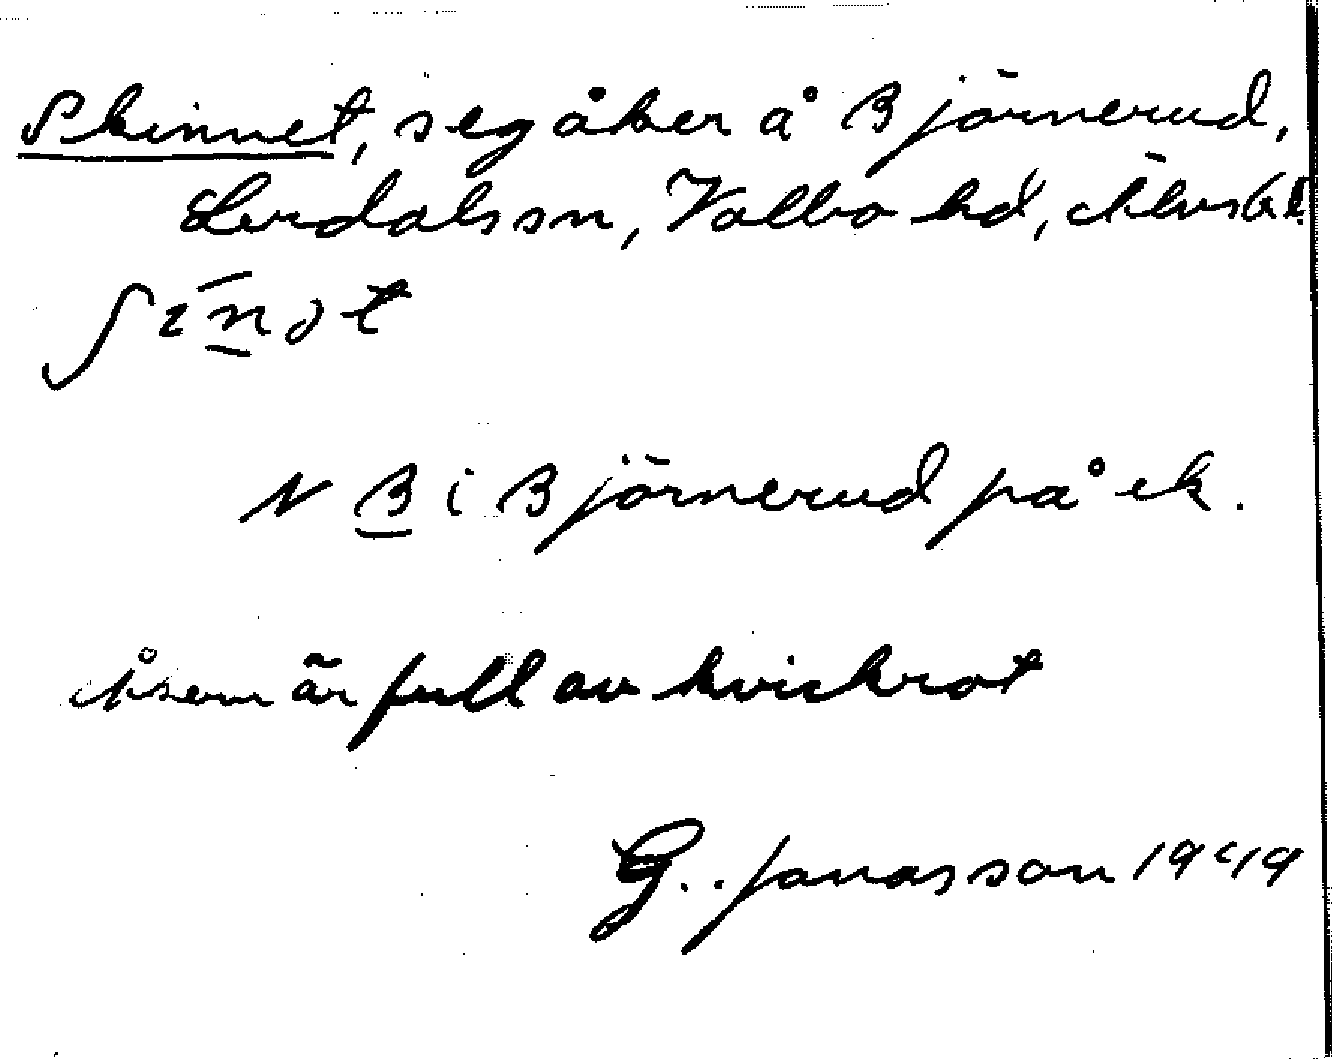 Skinnet, seg åker å Björnerud,
Lerdals sn, Valbo hd, Älvsbl
ʃɪn̲ət
N B i Björnerud på ek.
Åkern är full av kvickrot
G. Jonasson 1949